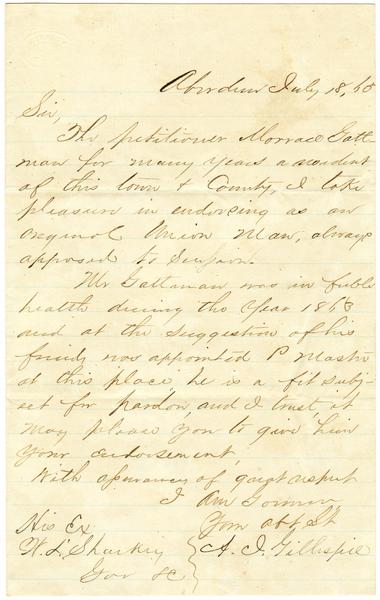 Aberdeen July 18, 65
Sir,
The petitioner Morrace Gatt-
man for many years a resident
of this town & County, I take
pleasure in endorsing as an
original Union Man, always
opposed to
Mr Gattman was in feeble
health during the year 1863
and at the suggestion of his
friends was appointed P Master
at this place, he is a fit subj-
ect for pardon, and I trust it
may please you to give him
your endorsement,
With assurancy of great respect
I am
Your obt St
A. J. Gillespie
His Ex
W L Sharkey
Gov &c